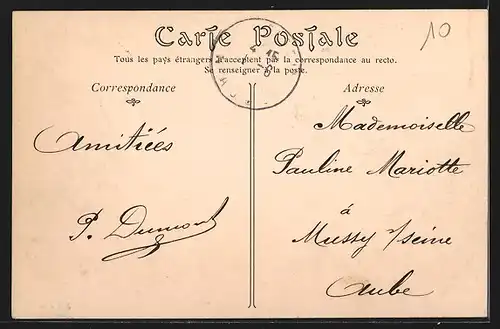 10
Carte Postale
Tous les pays étrangers n'acceptent pas la correspondance au recto.
Se renseigner à la poste.
Correspondance
Adresse
Amitiées
P. Dumont
Mademoiselle
Pauline Mariotte
à
Mussy s/seine
Aube